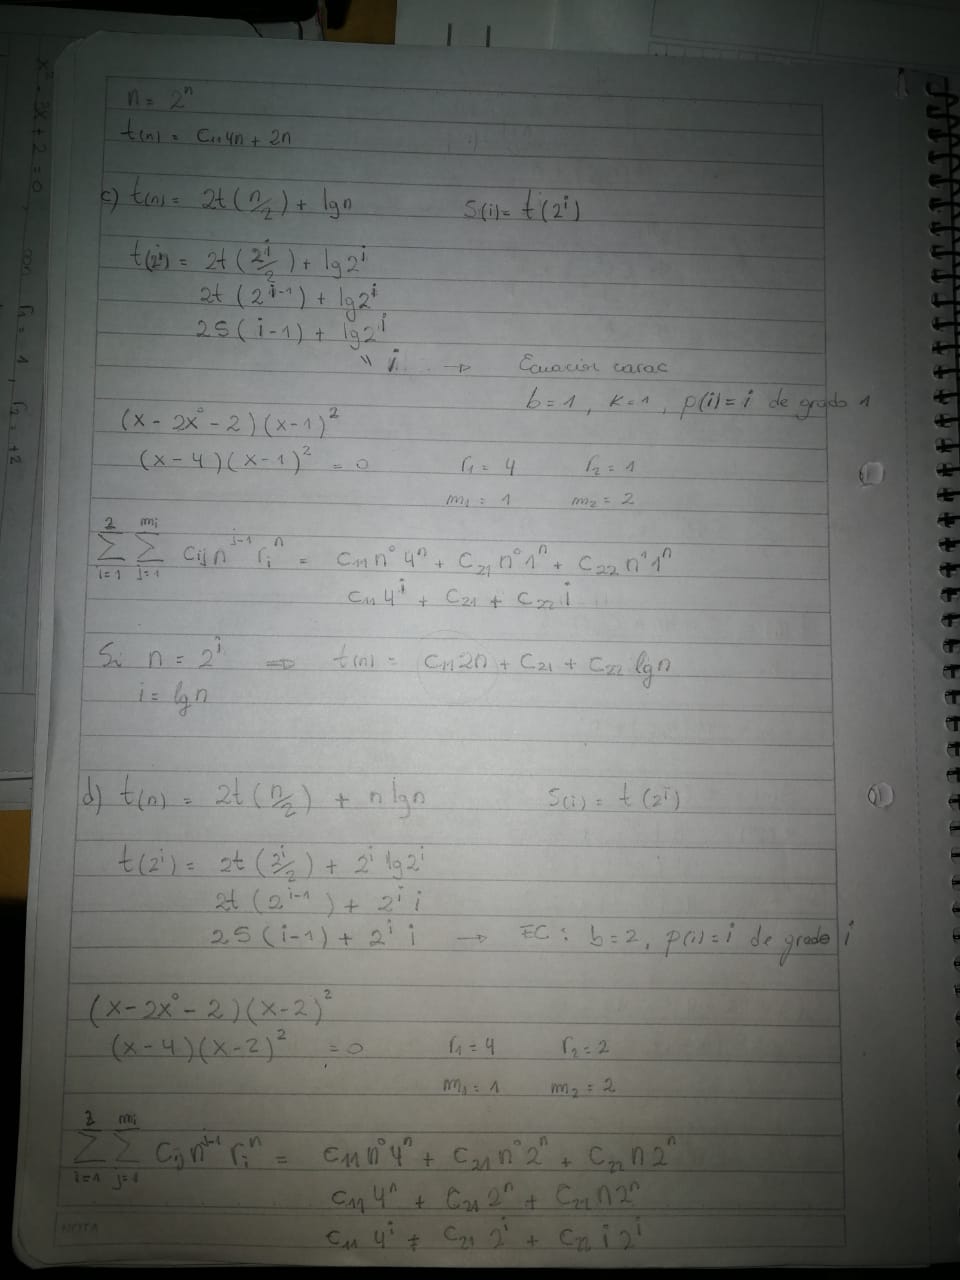 n = 2^n
t(n) = C₁₁4n + 2n
c) t(n) = 2t(n/2) + lgn    S(i) = t(2^i)
t(2^i) = 2t(2^i/2) + lg2^i
2t(2^{i-1}) + lg2^i
2S(i-1) + lg2^i
" i → Ecuación carac
b=1, K=1, p(i)=i de grado 1
(x-2x°-2)(x-1)²
(x-4)(x-1)² = 0    r₁=4    r₂=1
m₁=1    m₂=2
∑_{i=1}^{2} ∑_{j=1}^{mi} Cij n^{j-1} ri^n = C₁₁n°4^n + C₂₁n°1^n + C₂₂n¹1^n
C₁₁4^i + C₂₁ + C₂₂i
Si n = 2^i ⇒ t(n) = C₁₁2n + C₂₁ + C₂₂lgn
i = lgn
d) t(n) = 2t(n/2) + nlgn    S(i) = t(2^i)
t(2^i) = 2t(2^i/2) + 2^i lg2^i
2t(2^{i-1}) + 2^i i
2S(i-1) + 2^i i → EC: b=2, p(i)=i de grado i
(x-2x°-2)(x-2)²
(x-4)(x-2)² = 0    r₁=4    r₂=2
m₁=1    m₂=2
∑_{i=1}^{2} ∑_{j=1}^{mi} Cij n^{j-1} ri^n = C₁₁n°4^n + C₂₁n°2^n + C₂₂n2^n
C₁₁4^n + C₂₁2^n + C₂₂n2^n
C₁₁4^i + C₂₁2^i + C₂₂i2^i
NOTA
x² - 3x + 2 = 0, con r₁ = 1, r₂ = +2